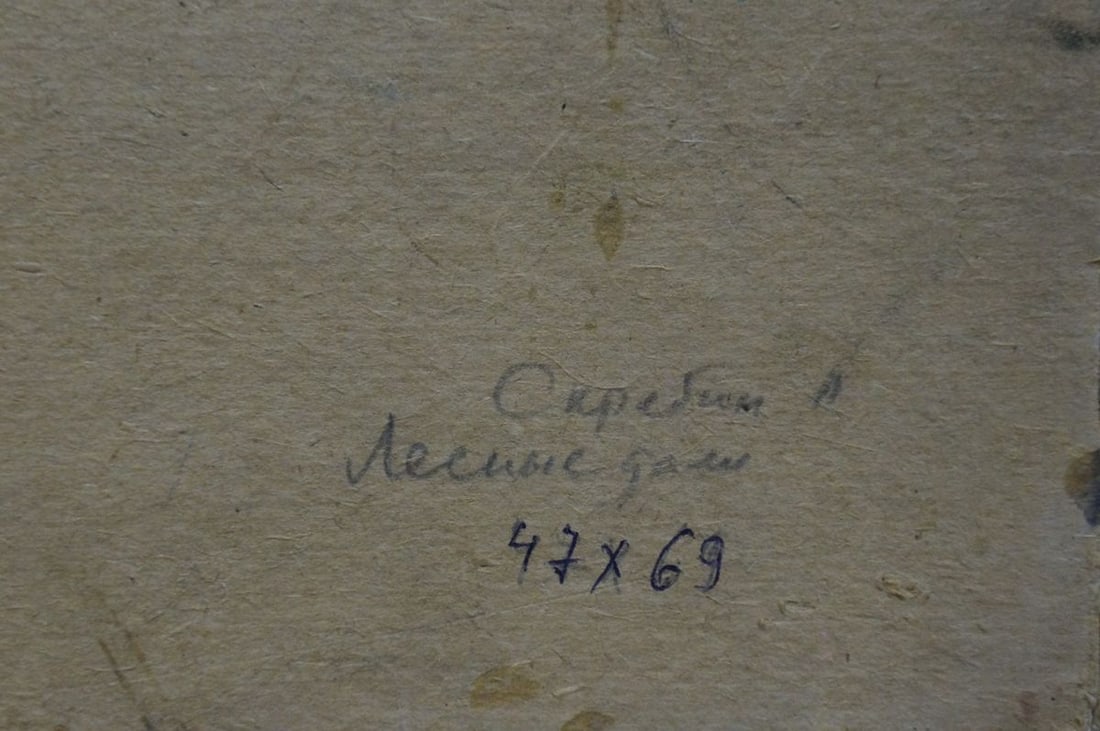 Скребин А
Лесные дали
47х69